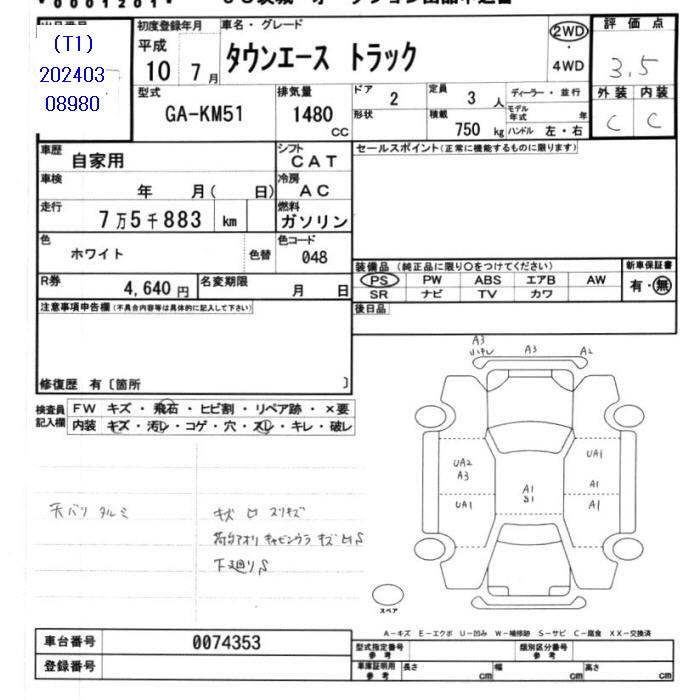 V0001201V
出品番号
(T1)
202403
08980
初度登録年月
平成
10 7 月
車名・グレード
タウンエース トラック
2WD
・
4WD
評価点
3.5
外装 内装
C C
型式
GA-KM51
排気量
1480 CC
ドア
2
形状
定員
3 人
積載
750 kg
ディーラー・並行
モデル年式 年
ハンドル 左・右
車歴
自家用
シフト
CAT
車検
年 月( 日)
冷房
AC
走行
7万5千883 km
燃料
ガソリン
色
ホワイト
色替
色コード
048
R券
4,640 円
名変期限
月 日
セールスポイント(正常に機能するものに限ります)
装備品(純正品に限り○をつけてください)
PS PW ABS エアB AW
SR ナビ TV カワ
新車保証書
有・無
後日品
注意事項申告欄(不具合内容等は具体的に記入して下さい)
修復歴 有〔箇所 〕
検査員記入欄
FW キズ・飛石・ヒビ割・リペア跡・×要
内装 キズ・汚レ・コゲ・穴・スレ・キレ・破レ
天バリ タルミ
キズ ロ スリキズ
荷台アオリ キャビンウラ キズ凹S
下廻りS
A3
小キレ
A3
A2
UA2
A3
UA1
A1
S1
UA1
A1
A1
スペア
A-キズ E-エクボ U-凹み W-補修跡 S-サビ C-腐食 XX-交換済
車台番号 0074353
登録番号
型式指定番号
参考
類別区分番号
参考
車庫証明用
参考
長さ cm
幅 cm
高さ cm